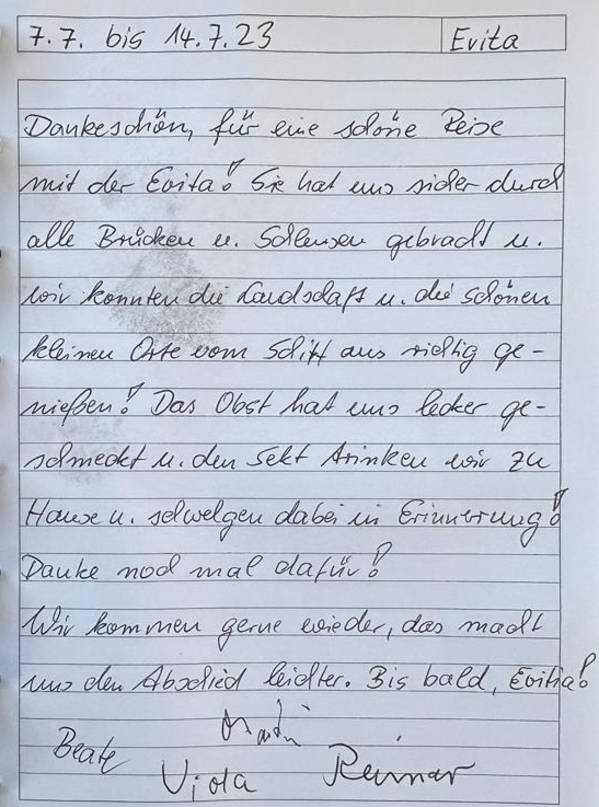 7.7. bis 14.7.23 Evita
Dankeschön, für eine schöne Reise
mit der Evita! Sie hat uns sicher durch
alle Brücken u. Schleusen gebracht u.
wir konnten die Landschaft u. die schönen
kleinen Orte vom Schiff aus richtig ge-
nießen! Das Obst hat uns lecker ge-
schmeckt u. den Sekt trinken wir zu
Hause u. schwelgen dabei in Erinnerung!
Danke noch mal dafür!
Wir kommen gerne wieder, das macht
uns den Abschied leichter. Bis bald, Evitia!
Beate
Viola Reimar